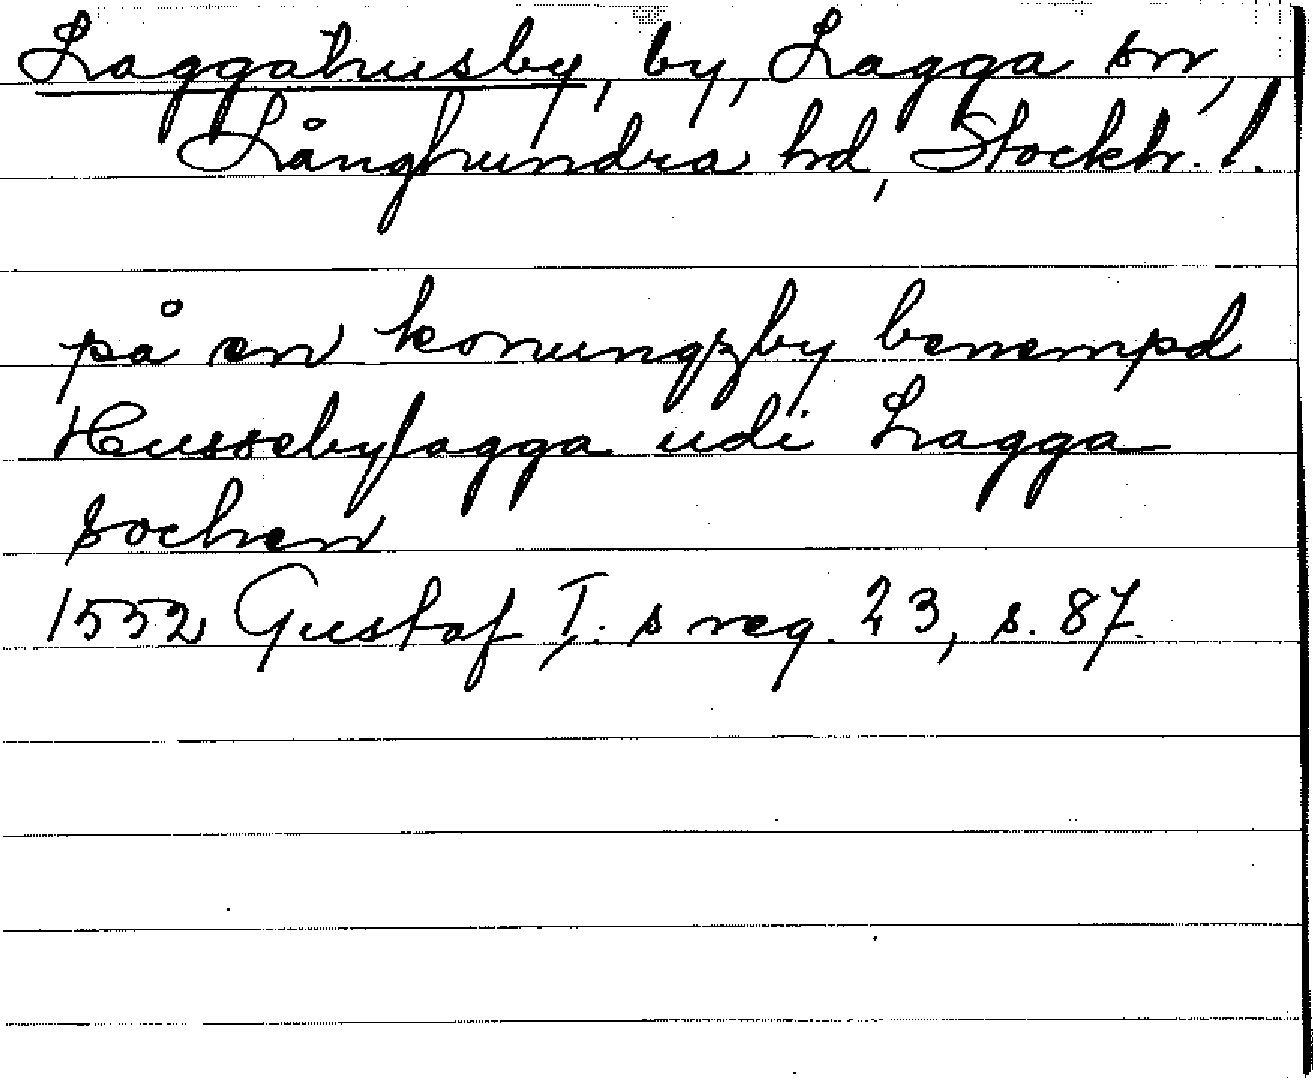 Laggahusby, by, Lagga sn,
Långhundra hd, Stockh. l.
på en konungzby benempd
Hussebylagga udi Lagga
sochen
1552 Gustaf I:s reg. 23, s. 87.